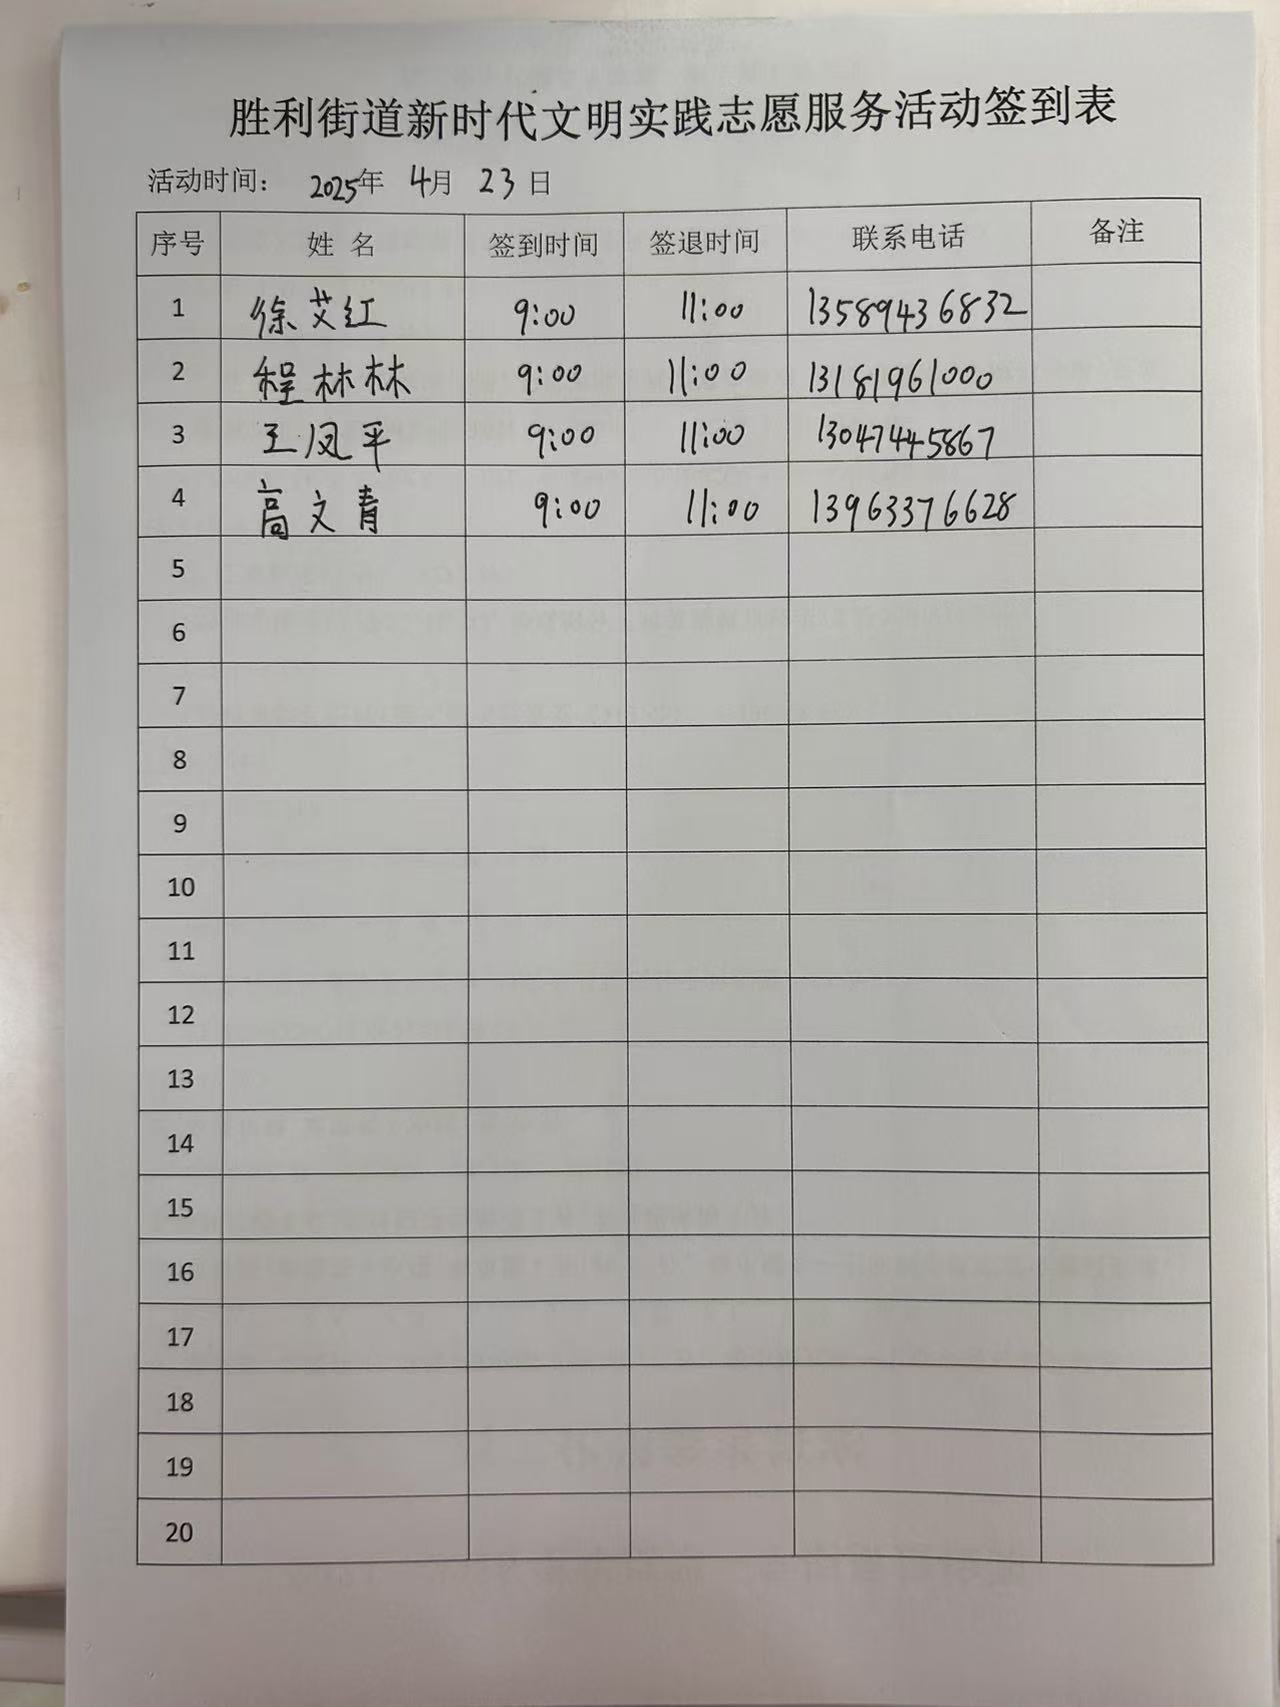 胜利街道新时代文明实践志愿服务活动签到表
活动时间： 2025年 4月 23日
序号 姓 名 签到时间 签退时间 联系电话 备注
1 徐艾红 9:00 11:00 13589436832
2 程林林 9:00 11:00 13181961000
3 王凤平 9:00 11:00 13047445867
4 高文青 9:00 11:00 13963376628
5
6
7
8
9
10
11
12
13
14
15
16
17
18
19
20